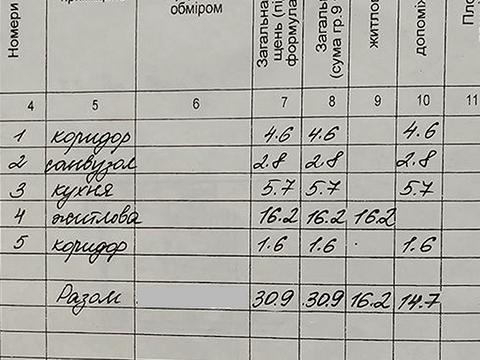 Номери
обміром
Загальна
щень (пі
формула
Загаль
(сума гр.9
житлов
допоміж
Пло
4 5 6 7 8 9 10 11
1 коридор 4.6 4.6 4.6
2 санвузол 2.8 2.8 2.8
3 кухня 5.7 5.7 5.7
4 житлова 16.2 16.2 16.2
5 коридор 1.6 1.6 1.6
Разом 30.9 30.9 16.2 14.7